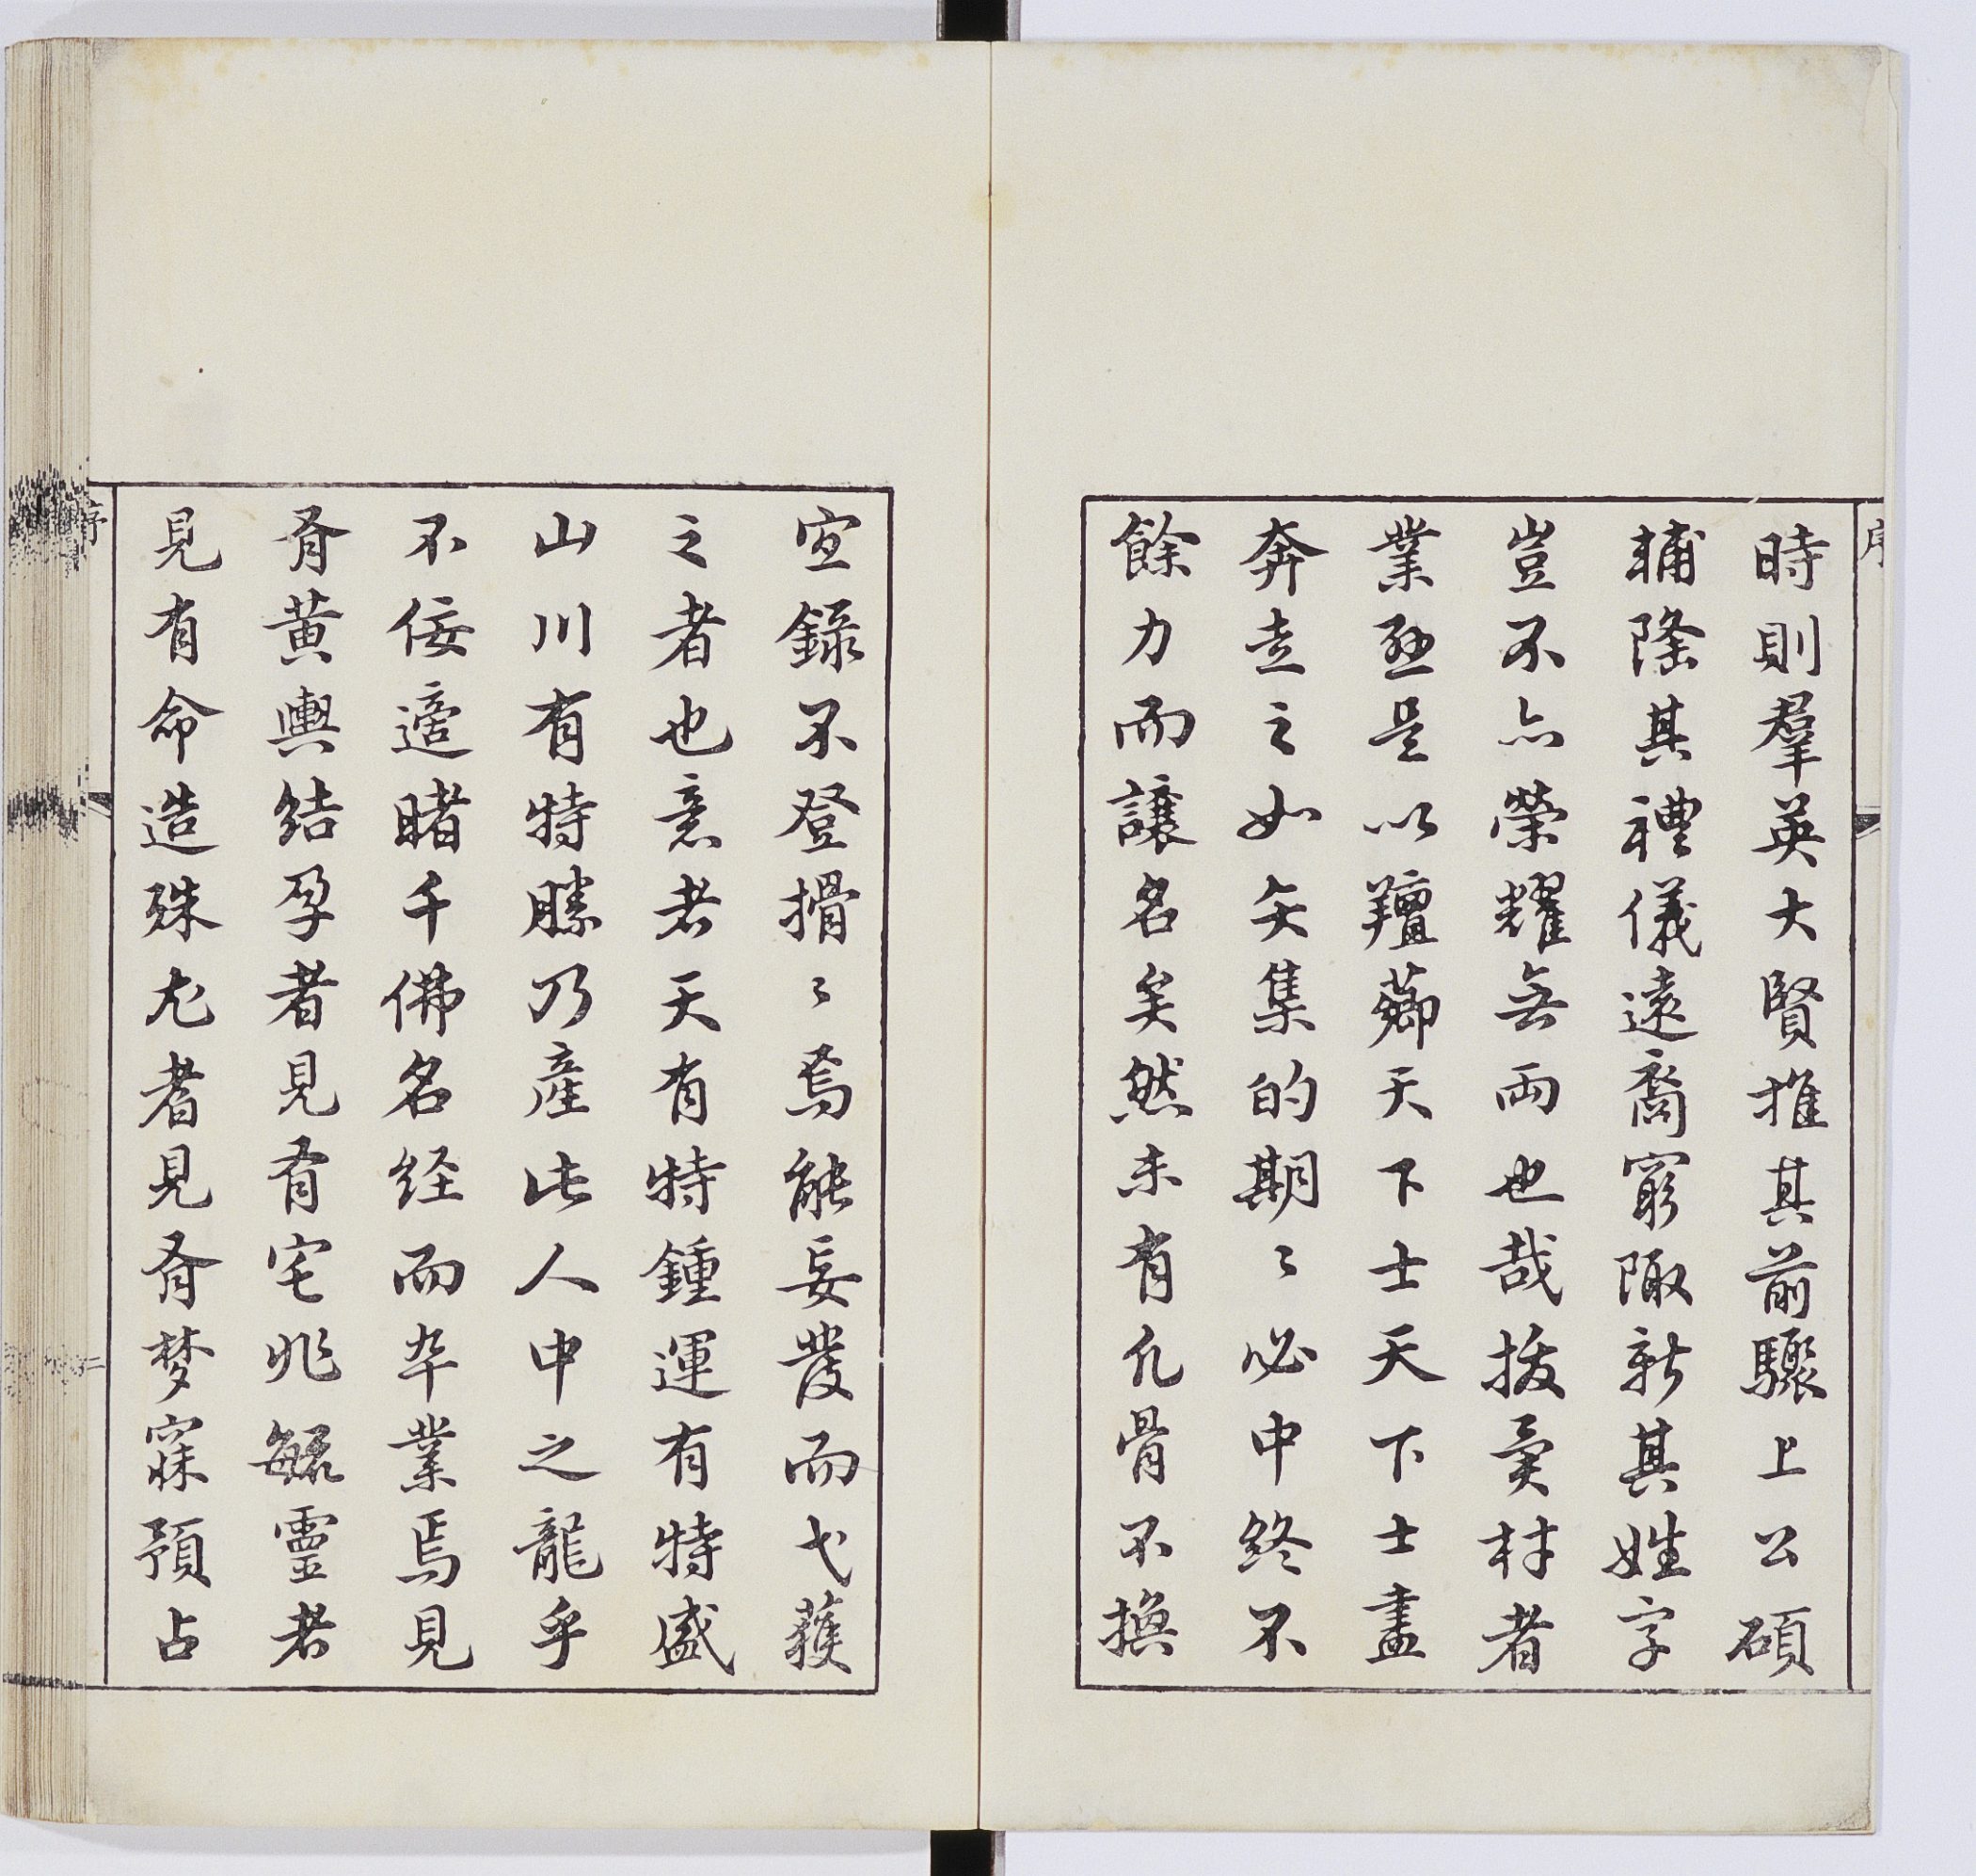 序
時則羣英大賢推其前驟上公碩
輔隆其禮儀遠裔窮陬新其姓字
豈不亦榮耀無兩也哉拔異材者
業亟是以羶薌天下士天下士盡
奔走之如矢集的期〻必中終不
餘力而讓名矣然未有凡骨不換
宣錄不登搰〻焉能妄發而弋獲
之者也意者天有特鍾運有特盛
山川有特勝乃產此人中之龍乎
不佞適睹千佛名經而卒業焉見
有黃輿結孕者見有宅兆毓靈者
見有命造殊尤者見有夢寐預占
序